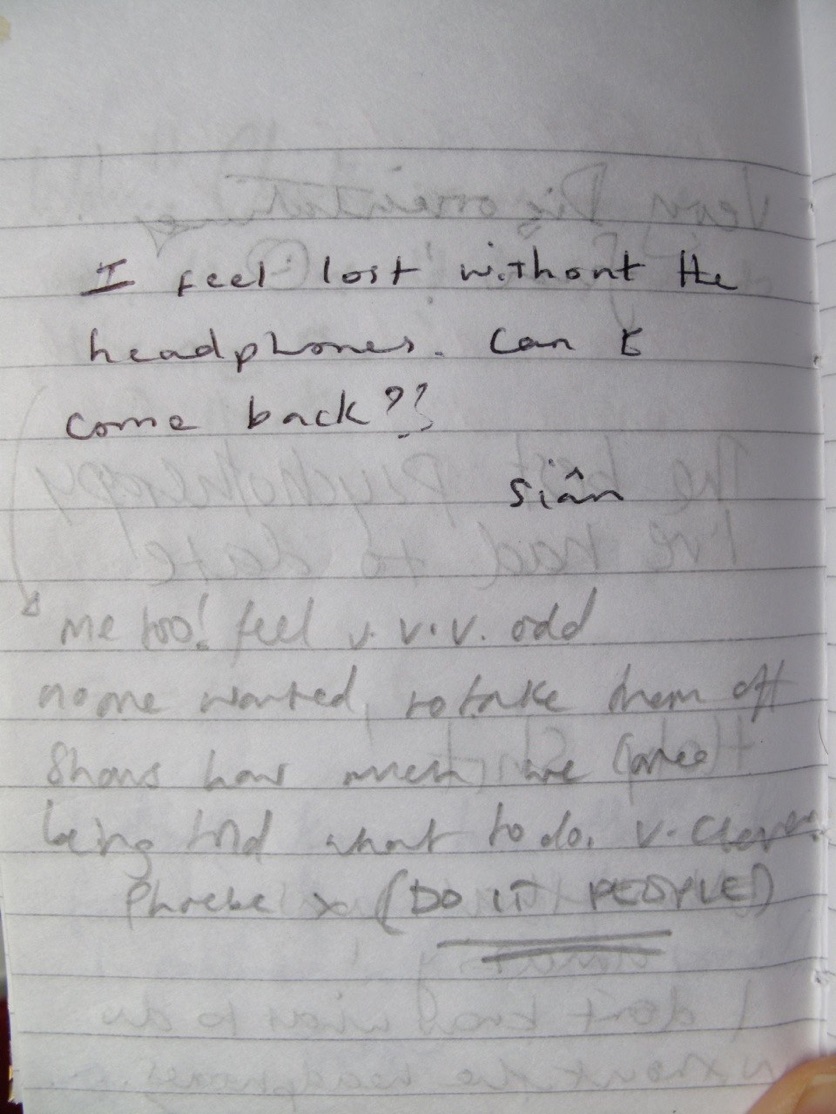 I feel lost without the
headphones. Can I
come back??
Siân
me too! feel v. v.v. odd
noone wanted to take them off
Shows how much we
being told what to do. v. clever
Phoebe x (DO IT PEOPLE)